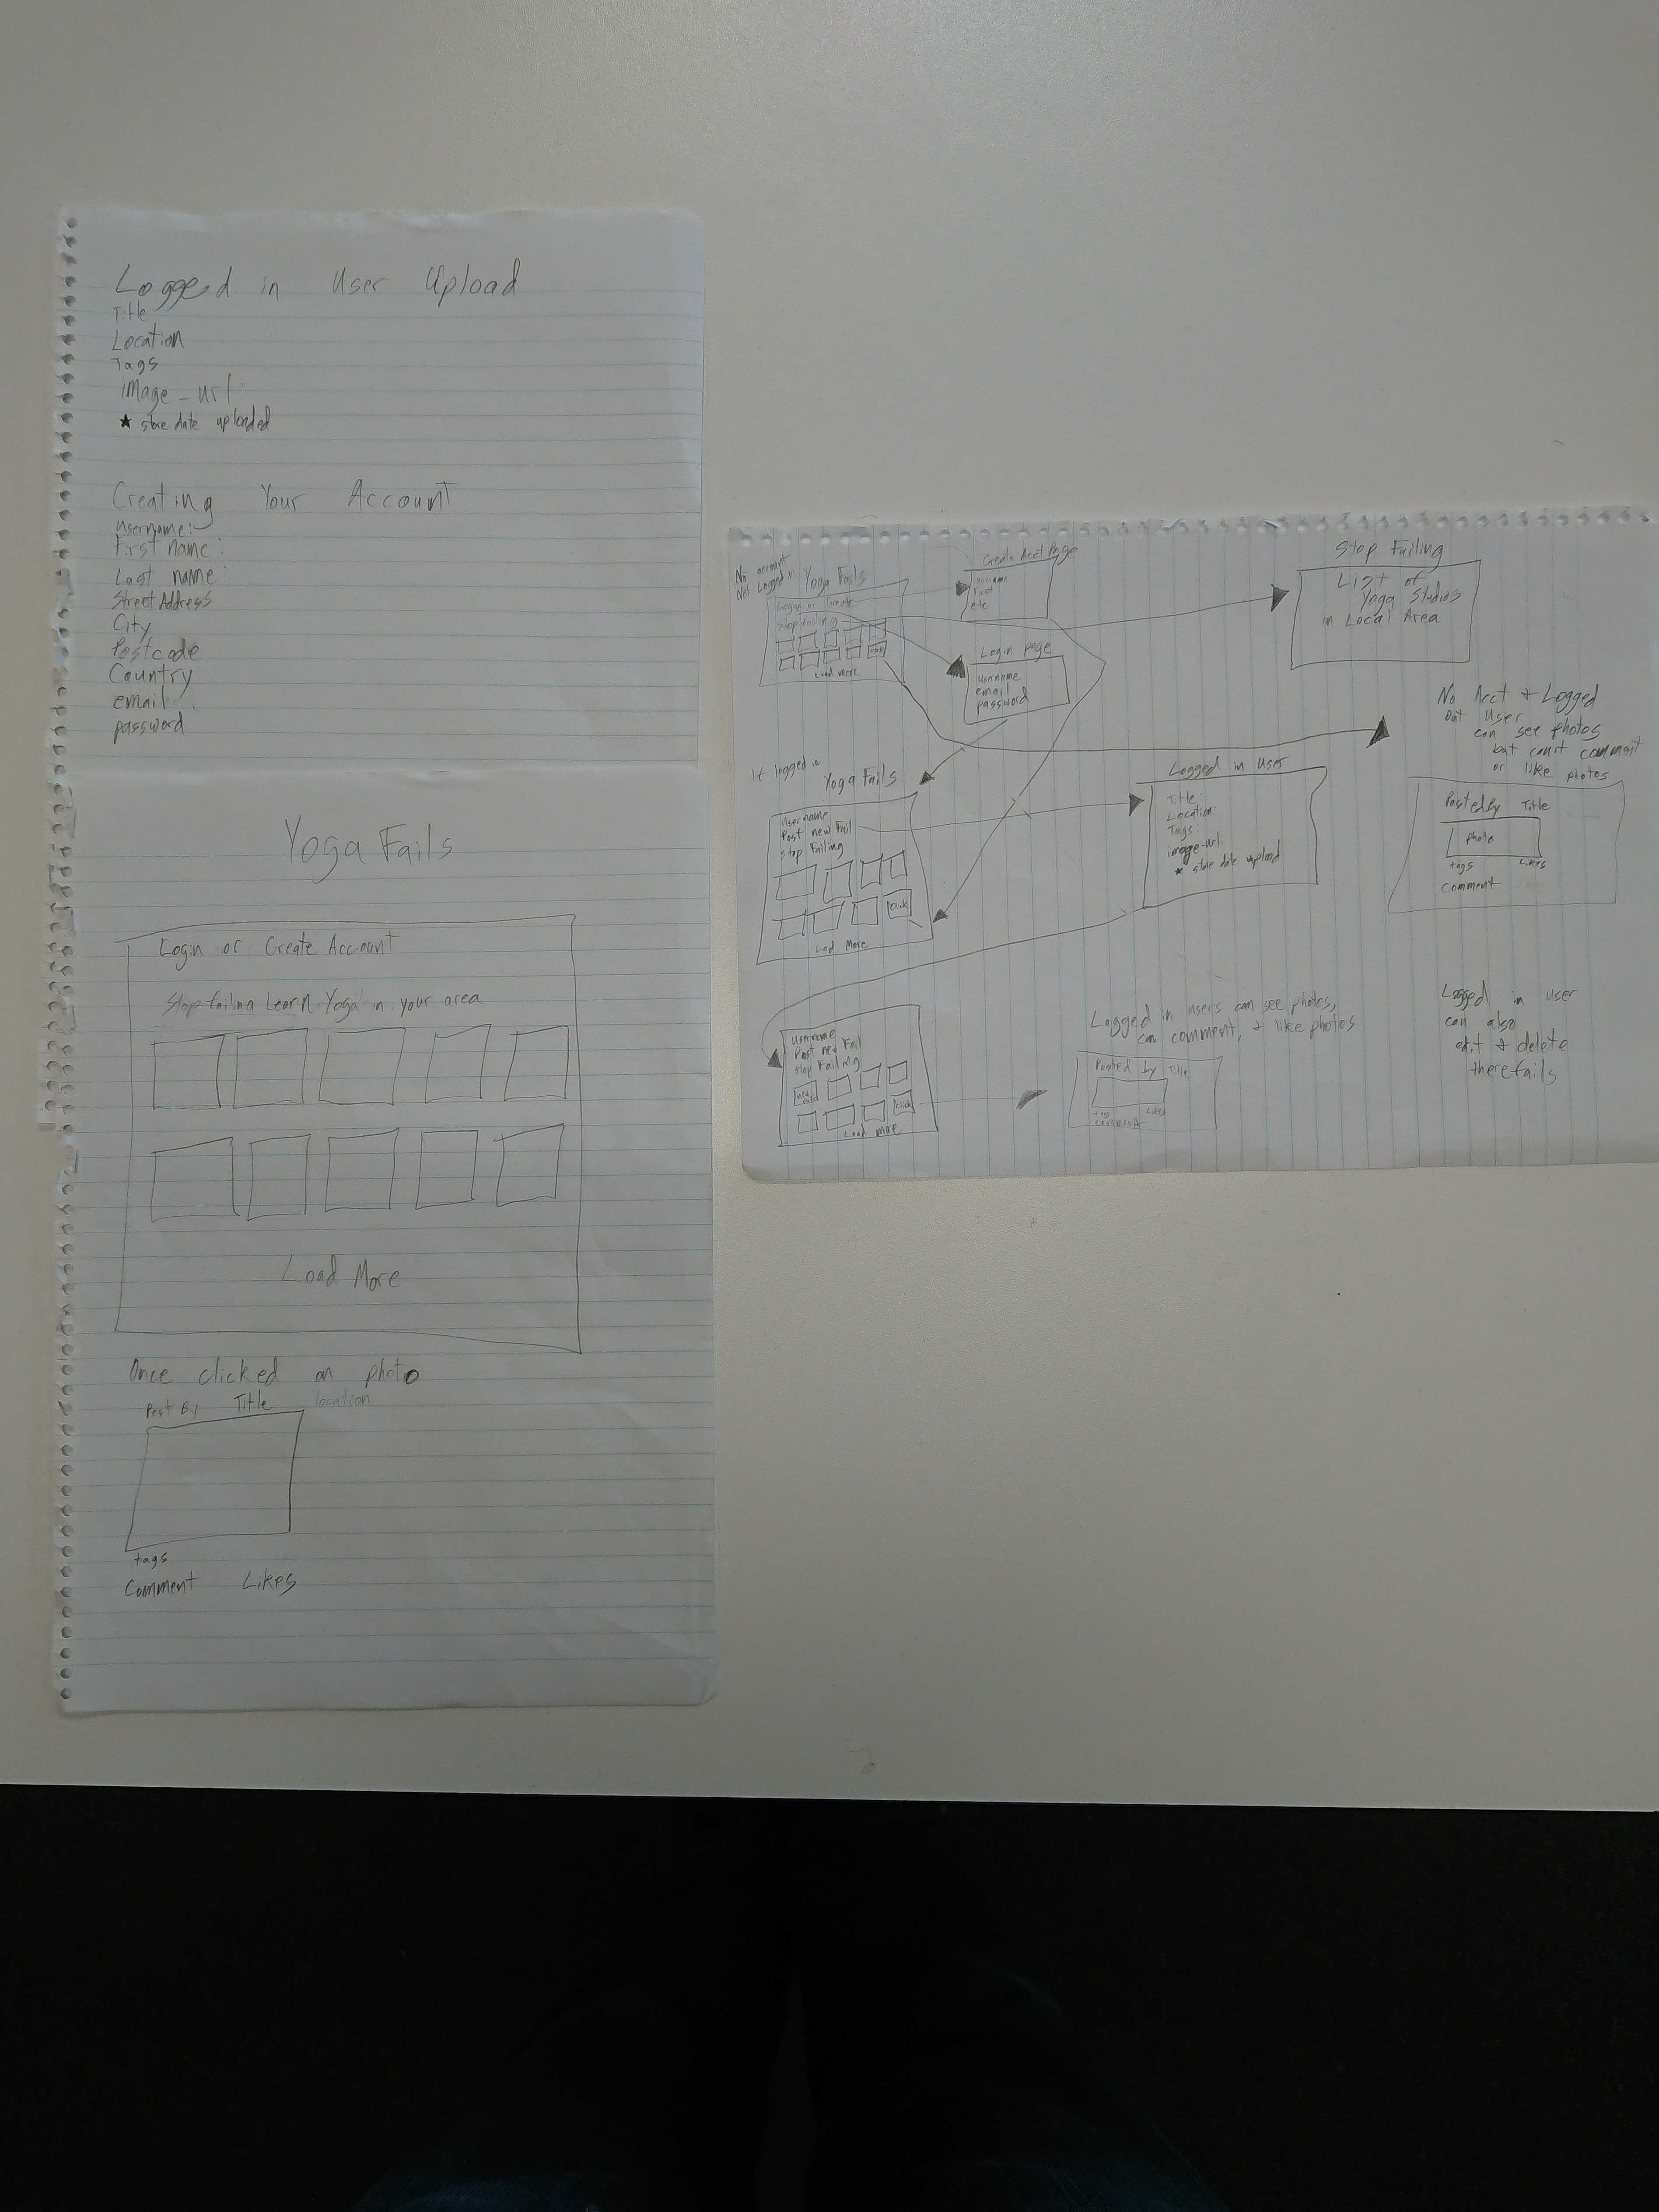 Logged in User Upload
Title
Location
Tags
image_url
★ store date uploaded
Creating Your Account
Username:
First name:
Last name:
Street Address
City
Postcode
Country
email
password
Yoga Fails
Login or Create Account
Stop failing Learn Yoga in your area
Load More
Once clicked on photo
Post By Title location
tags
Comment Likes
No account
Not Logged in
Yoga Fails
Login or Create
Stop failing
Load more
Create Acct Page
username
First
etc
Login page
username
email
password
Stop Failing
List of
Yoga Studios
in Local Area
No Acct + Logged
out User
can see photos
but can't comment
or like photos
Posted by Title
photo
tags Likes
Comment
If logged in
Yoga Fails
Username
Post new Fail
Stop Failing
Click
Load More
Logged in User
Title:
Location:
Tags
image-url:
★ store date upload
Username
Post new Fail
Stop Failing
new
Click
Load more
Logged in users can see photos,
can comment, + like photos
Posted by Title
tags Likes
comment
Logged in user
can also
edit + delete
there fails